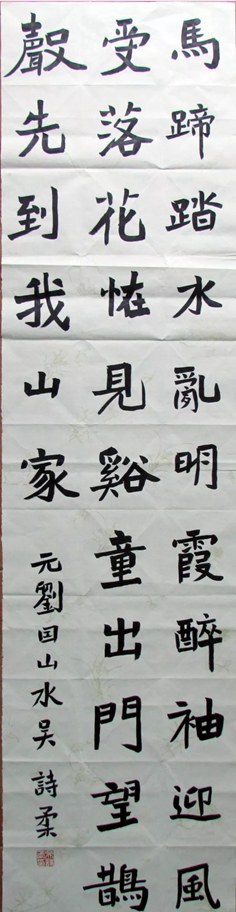 馬蹄踏水亂明霞醉袖迎風
受落花怪見谿童出門望鵲
聲先到我山家
元劉因山水吴詩柔